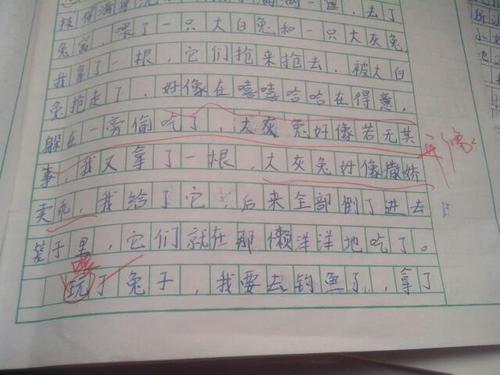 兔窝，喂了一只大白兔和一只大灰兔
我拿了一根，它们抢来抢去，被大白
兔抢走了，好像在嘻嘻哈哈在得意，
躲在一旁偷吃了，大灰兔好像若无其
事，我又拿了一根，大灰兔好像撒娇
卖乖，我给了它，后来全部倒了进去
笼子里，它们就在那懒洋洋地吃了。
玩了兔子，我要去钓鱼了，拿了